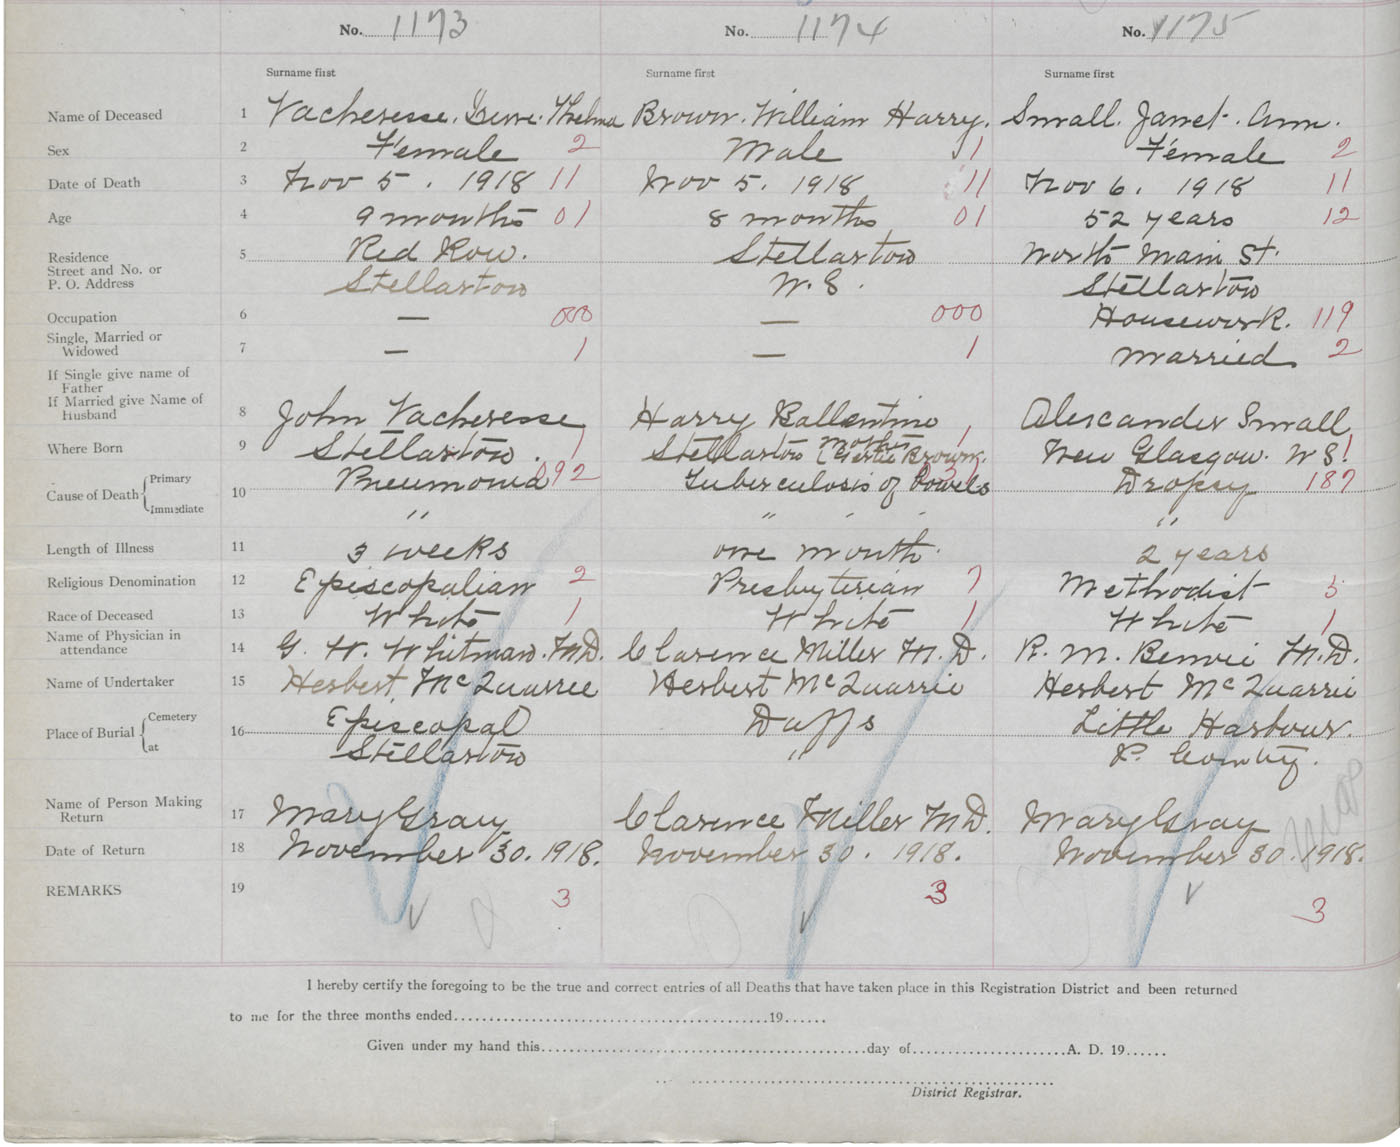 No. 1173 No. 1174 No. 1175
Surname first Surname first Surname first
Name of Deceased 1 Vacheresse. Irene. Thelma Brown. William Harry. Small. Janet. Ann.
Sex 2 Female 2 Male 1 Female 2
Date of Death 3 Nov 5. 1918 11 Nov 5. 1918 11 Nov 6. 1918 11
Age 4 9 months 01 8 months 01 52 years 12
Residence 5 Red Row. Stellarton North Main St.
Street and No. or
P. O. Address Stellarton N.S. Stellarton
Occupation 6 — 000 — 000 Housework. 119
Single, Married or
Widowed 7 — 1 — 1 Married 2
If Single give name of
Father
If Married give Name of
Husband 8 John Vacheresse Harry Ballentine Alexander Small
mother
Where Born 9 Stellarton. 1 Stellarton (Gertie Brown. 1 New Glasgow. N S. 1
Cause of Death Primary 10 Pneumonia 092 Tuberculosis of bowels Dropsy 187
Immediate " " " " "
Length of Illness 11 3 weeks one month. 2 years
Religious Denomination 12 Episcopalian 2 Presbyterian 7 Methodist 5
Race of Deceased 13 White 1 White 1 White 1
Name of Physician in
attendance 14 G. W. Whitman. M.D. Clarence Miller M.D. R. M. Benvie M.D.
Name of Undertaker 15 Herbert McQuarrie Herbert McQuarrie Herbert McQuarrie
Place of Burial Cemetery 16 Episcopal Duffs Little Harbour.
at Stellarton " P. County.
Name of Person Making
Return 17 Mary Gray Clarence Miller M.D. Mary Gray
Date of Return 18 November 30. 1918. November 30. 1918. November 30. 1918.
REMARKS 19 3 3 3
I hereby certify the foregoing to be the true and correct entries of all Deaths that have taken place in this Registration District and been returned
to me for the three months ended..........19......
Given under my hand this..........day of..........A. D. 19......
District Registrar.